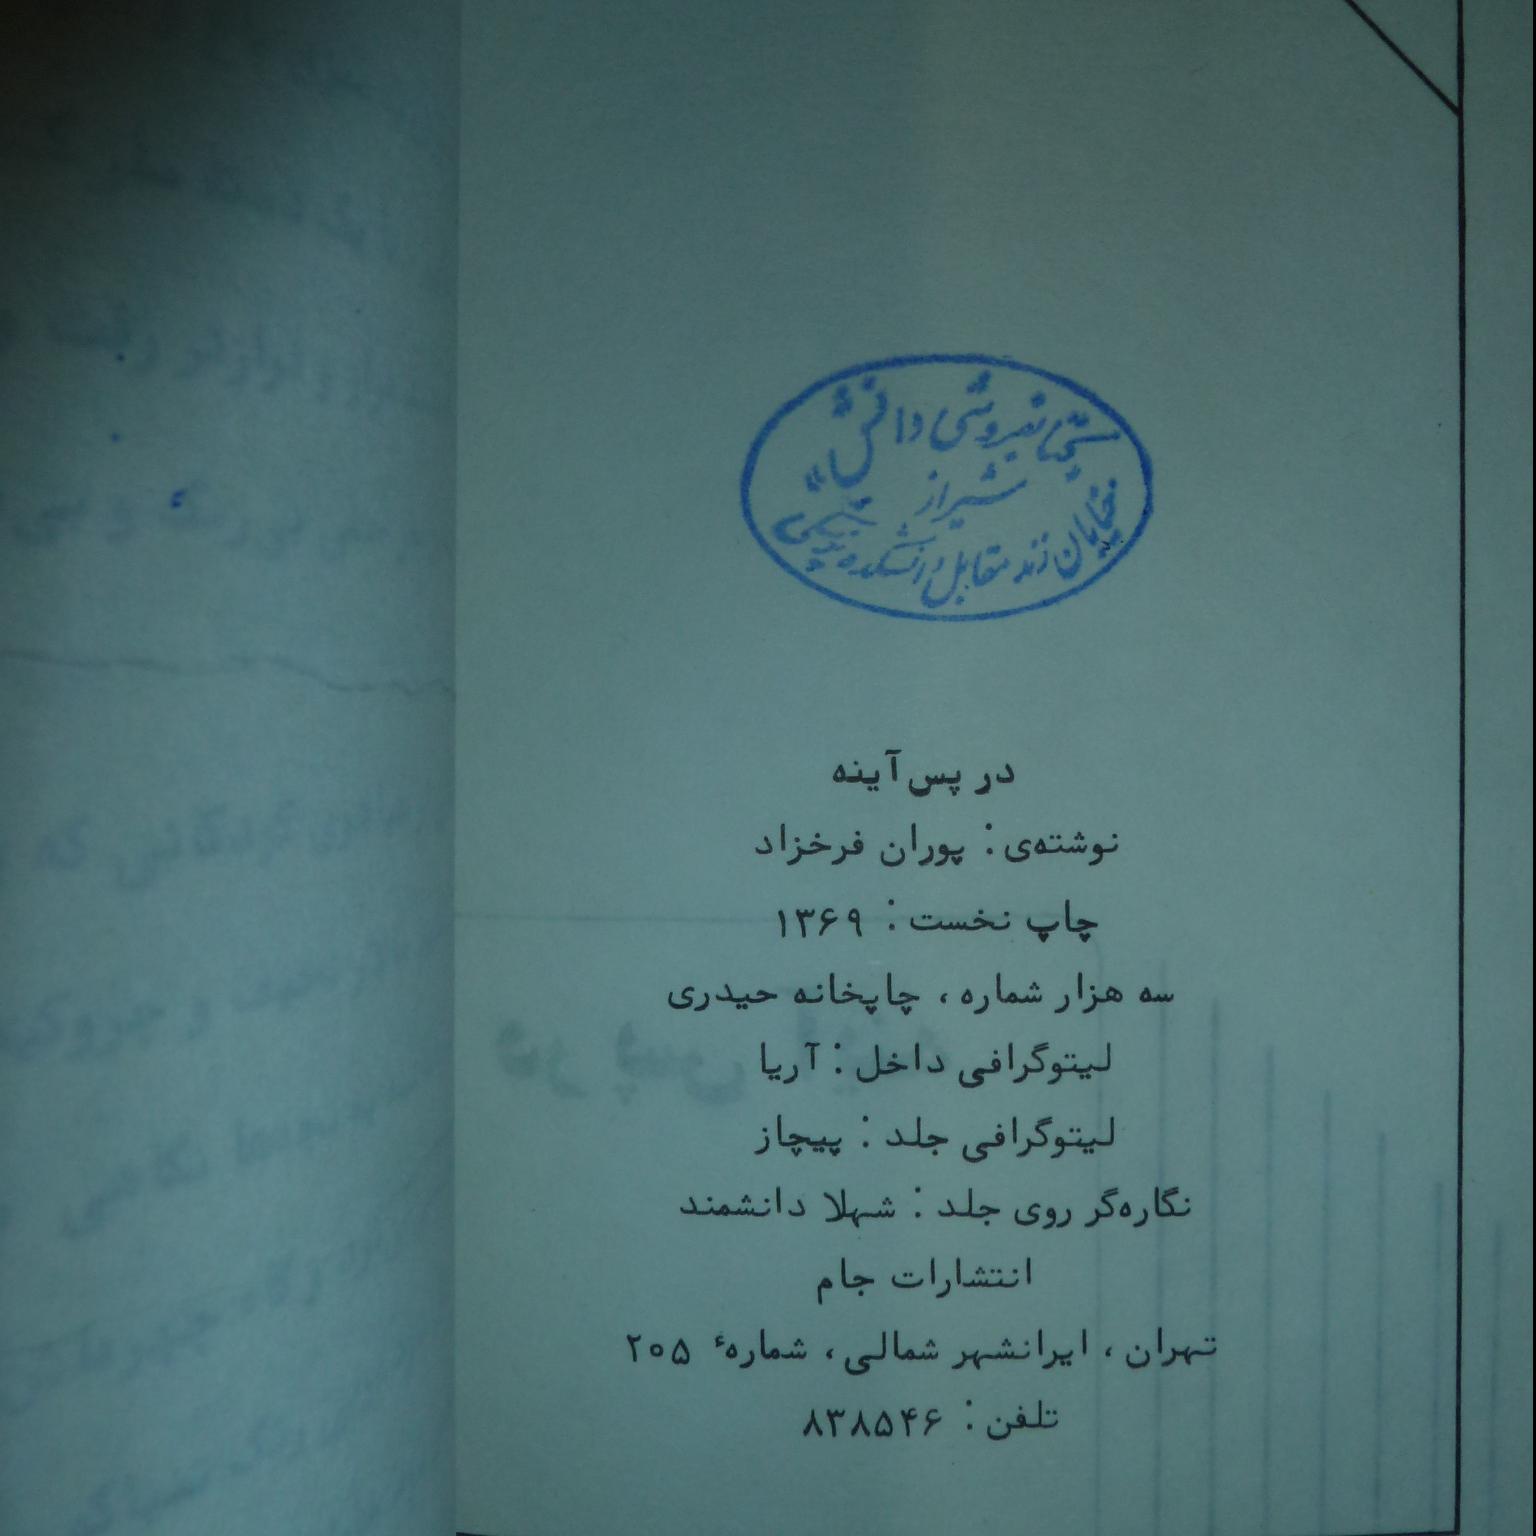 کتابفروشی دانش
شیراز
خیابان زند مقابل دانشکده پزشکی
در پس آینه
نوشته‌ی : پوران فرخزاد
چاپ نخست : ۱۳۶۹
سه هزار شماره ، چاپخانه حیدری
لیتوگرافی داخل : آریا
لیتوگرافی جلد : پیچاز
نگاره‌گر روی جلد : شهلا دانشمند
انتشارات جام
تهران ، ایرانشهر شمالی ، شمارهٔ ۲۰۵
تلفن : ۸۳۸۵۴۶